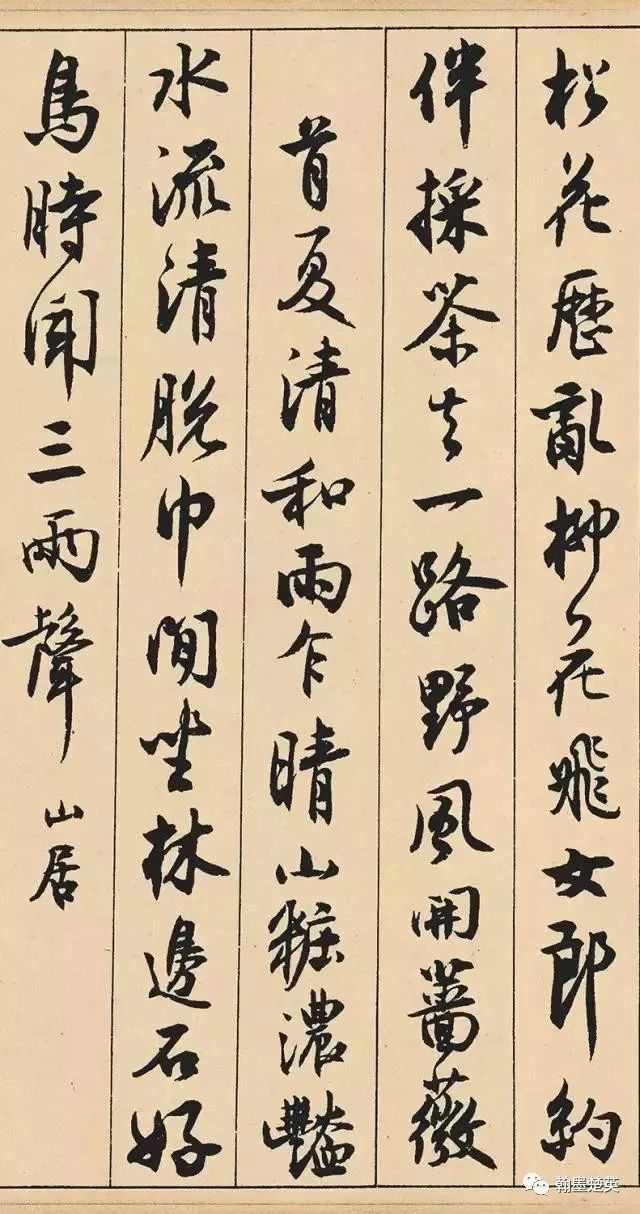 松花歷亂柳花飛女郎約
伴採茶去一路野風開薔薇
首夏清和雨乍晴山粧濃豔
水流清脫巾閒坐林邊石好
鳥時聞三兩聲 山居
翰墨楚英